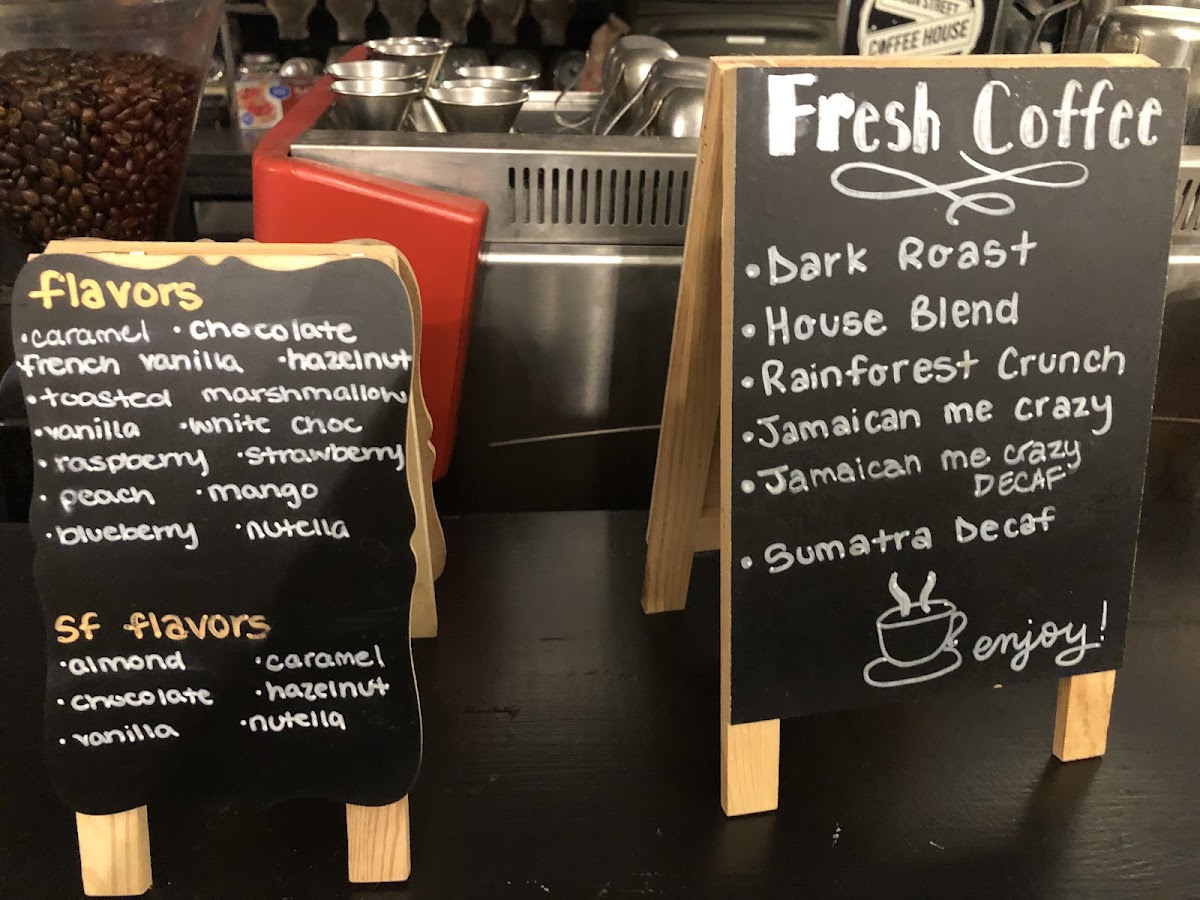 STREET
COFFEE HOUSE
flavors
•caramel •chocolate
french vanilla •hazelnut
•toasted marshmallow
•vanilla •white choc
•raspberry •strawberry
•peach •mango
•blueberry •nutella
sf flavors
•almond •caramel
•chocolate •hazelnut
•vanilla •nutella
Fresh Coffee
•Dark Roast
•House Blend
•Rainforest Crunch
•Jamaican me crazy
•Jamaican me crazy
DECAF
•Sumatra Decaf
enjoy!